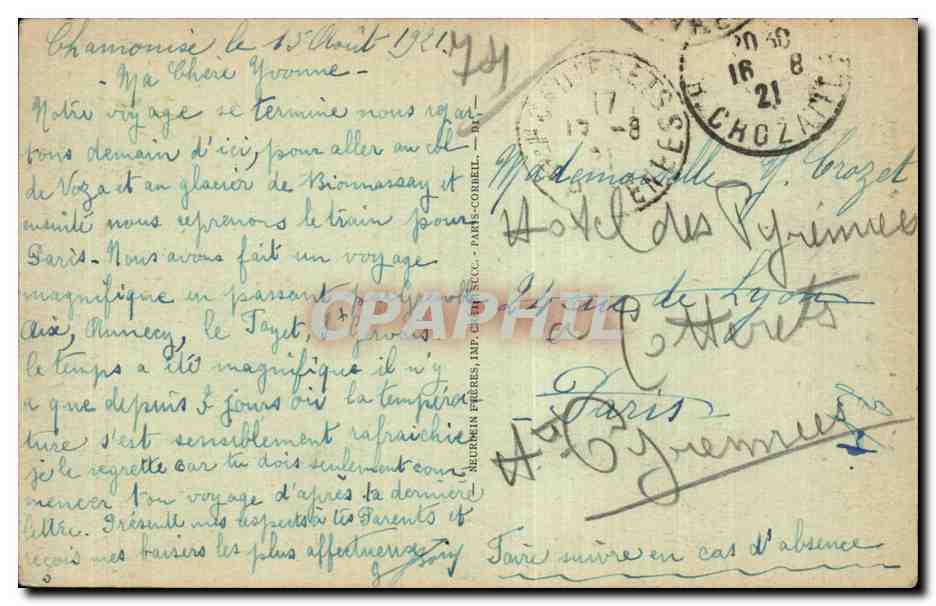 Chamonix le 15 Août 1921.
- Ma Chère Yvonne -
Notre voyage se termine nous repar-
tons demain d'ici, pour aller au col
de Voza et au glacier de Bionnassay et
ensuite nous reprenons le train pour
Paris - Nous avons fait un voyage
magnifique en passant par Grenoble
Aix, Annecy, le Fayet,
le temps a été magnifique il n'y
a que depuis 3 jours où la tempéra-
ture s'est sensiblement rafraichie
je le regrette car tu dois seulement com-
mencer ton voyage d'après ta dernière
lettre. Présente mes respects à tes Parents et
reçois mes baisers les plus affectueux
74
NEURDEIN FRÈRES, IMP. CRÉTÉ, SUCC. - PARIS-CORBEIL. -
CAUTERETS
17
-8
PYRÉNÉES
20 30
16 - 8
21
R. CROZATIER
Mademoiselle Y. Crozet
Hotel des Pyrénnées
24 rue de Lyon
a Cotterets
Paris
Htes Pyrennees
Faire suivre en cas d'absence
CPAPHIL